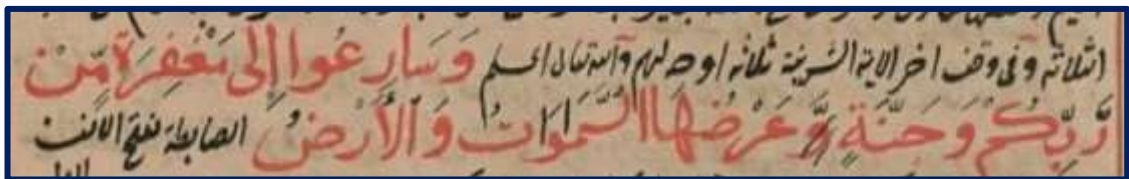 الثلاثة وفى وقف اخر الاية الشريفة ثلاثة اوجه لهم والله تعالى اعلم وَسَارِعُوا إِلَى مَغْفِرَةٍ مِّنْ
رَّبِّكُمْ وَجَنَّةٍ وَّعَرْضُهَا السَّمَوَاتُ وَالْأَرْضُ الضابطة بفتح الالف